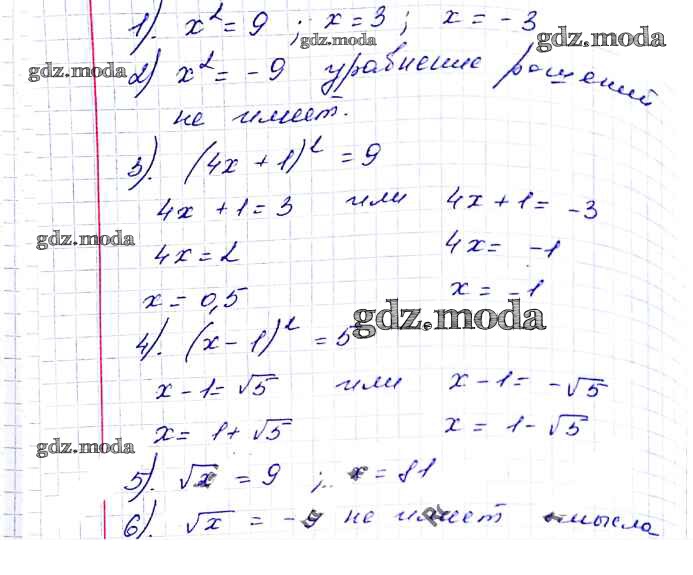 1). x² = 9 ; x = 3 ; x = - 3
gdz.moda
gdz.moda
2) x² = - 9 уравнение решений
не имеет.
3). (4x + 1)² = 9
4x + 1 = 3 или 4x + 1 = - 3
gdz.moda
4x = 2 4x = -1
x = 0,5 x = -1
gdz.moda
4). (x - 1)² = 5
x - 1 = √5 или x - 1 = - √5
x = 1 + √5 x = 1 - √5
gdz.moda
5). √x = 9 ; x = 81
6). √x = - 9 не имеет смысла